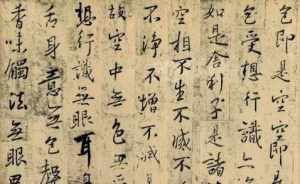 色即是空空即是
色受想行識亦
如是舍利子是諸
空相不生不滅不
不淨不增不減是
故空中無色无受
想行識無眼耳鼻
舌身意无色聲
香味觸法無眼界